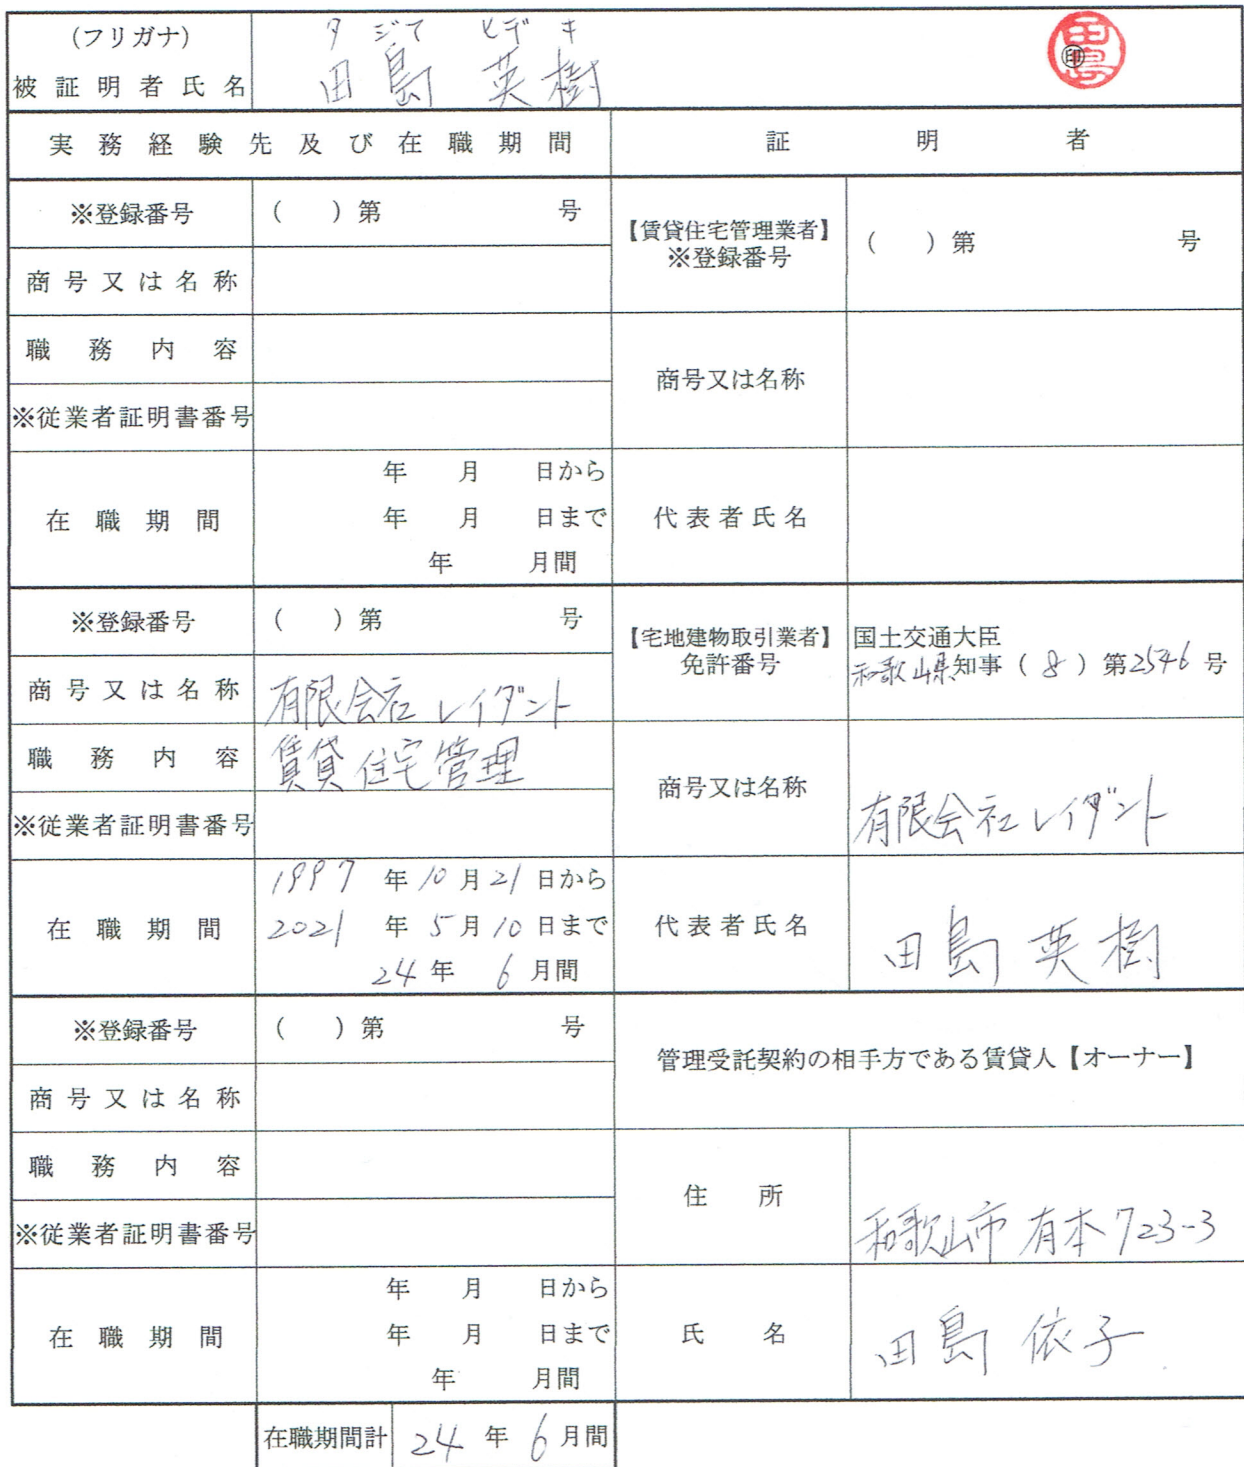 (フリガナ) タジマ ヒデキ
被証明者氏名 田島 英樹 ㊞ 田島
実務経験先及び在職期間 証明者
※登録番号 ( )第 号
【賃貸住宅管理業者】
※登録番号 ( )第 号
商号又は名称
職務内容
商号又は名称
※従業者証明書番号
在職期間 年 月 日から
年 月 日まで
年 月間
代表者氏名
※登録番号 ( )第 号
【宅地建物取引業者】
免許番号
国土交通大臣
和歌山県知事(8)第2546号
商号又は名称 有限会社レイダント
職務内容 賃貸住宅管理
商号又は名称 有限会社レイダント
※従業者証明書番号
在職期間 1997年10月21日から
2021年5月10日まで
24年 6月間
代表者氏名 田島英樹
※登録番号 ( )第 号
管理受託契約の相手方である賃貸人【オーナー】
商号又は名称
職務内容
住所 和歌山市有本723-3
※従業者証明書番号
在職期間 年 月 日から
年 月 日まで
年 月間
氏名 田島依子
在職期間計 24年6月間